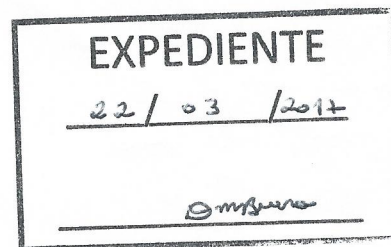 EXPEDIENTE
22 / 03 /2017